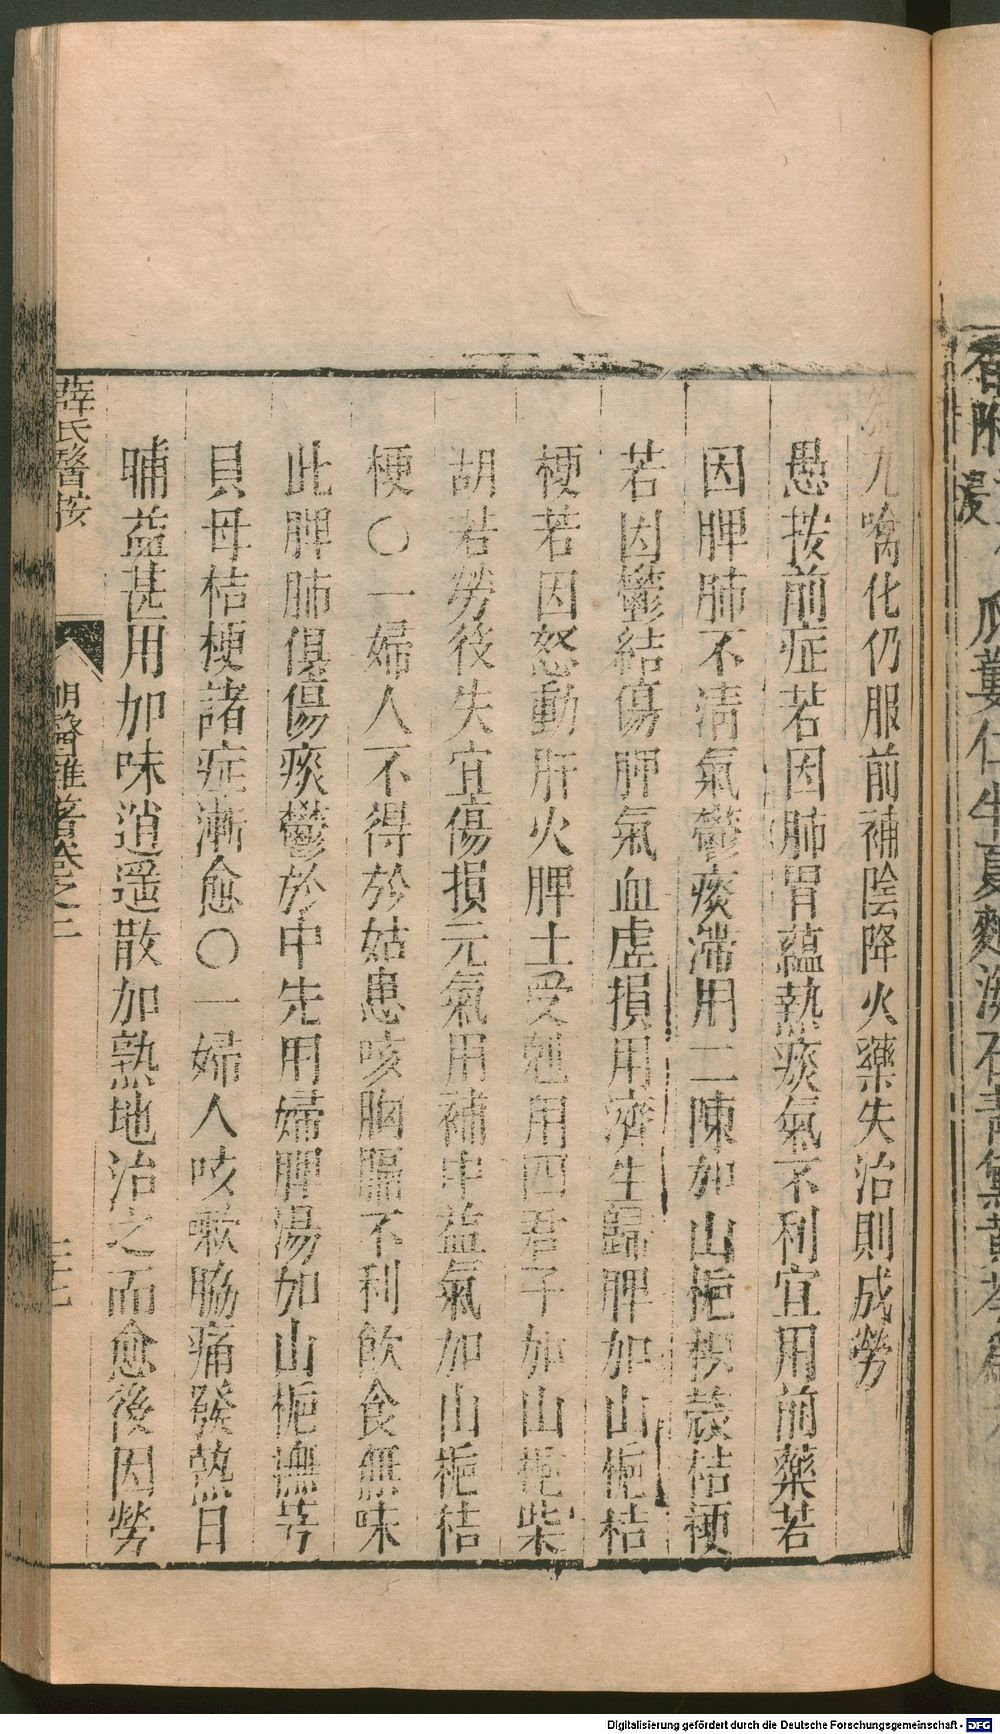 丸噙化仍服前補陰降火藥失治則成勞
愚按前症若因肺胃蘊熱痰氣不利宜用前藥若
因脾肺不清氣鬱痰滯用二陳加山梔枳殻桔梗
若因鬱結傷脾氣血虚損用濟生歸脾加山梔桔
梗若因怒動肝火脾土受尅用四君子加山梔柴
胡若勞役失宜傷損元氣用補中益氣加山梔桔
梗〇一婦人不得於姑患咳胸膈不利飲食無味
此脾肺俱傷痰鬱於中先用歸脾湯加山梔撫芎
貝母桔梗諸症漸愈〇一婦人咳嗽脇痛發熱日
晡益甚用加味逍遥散加熟地治之而愈後因勞
薛氏醫按 明醫雜著卷之二
香附 瓜蔞仁半夏麴
Digitalisierung gefördert durch die Deutsche Forschungsgemeinschaft - DFG